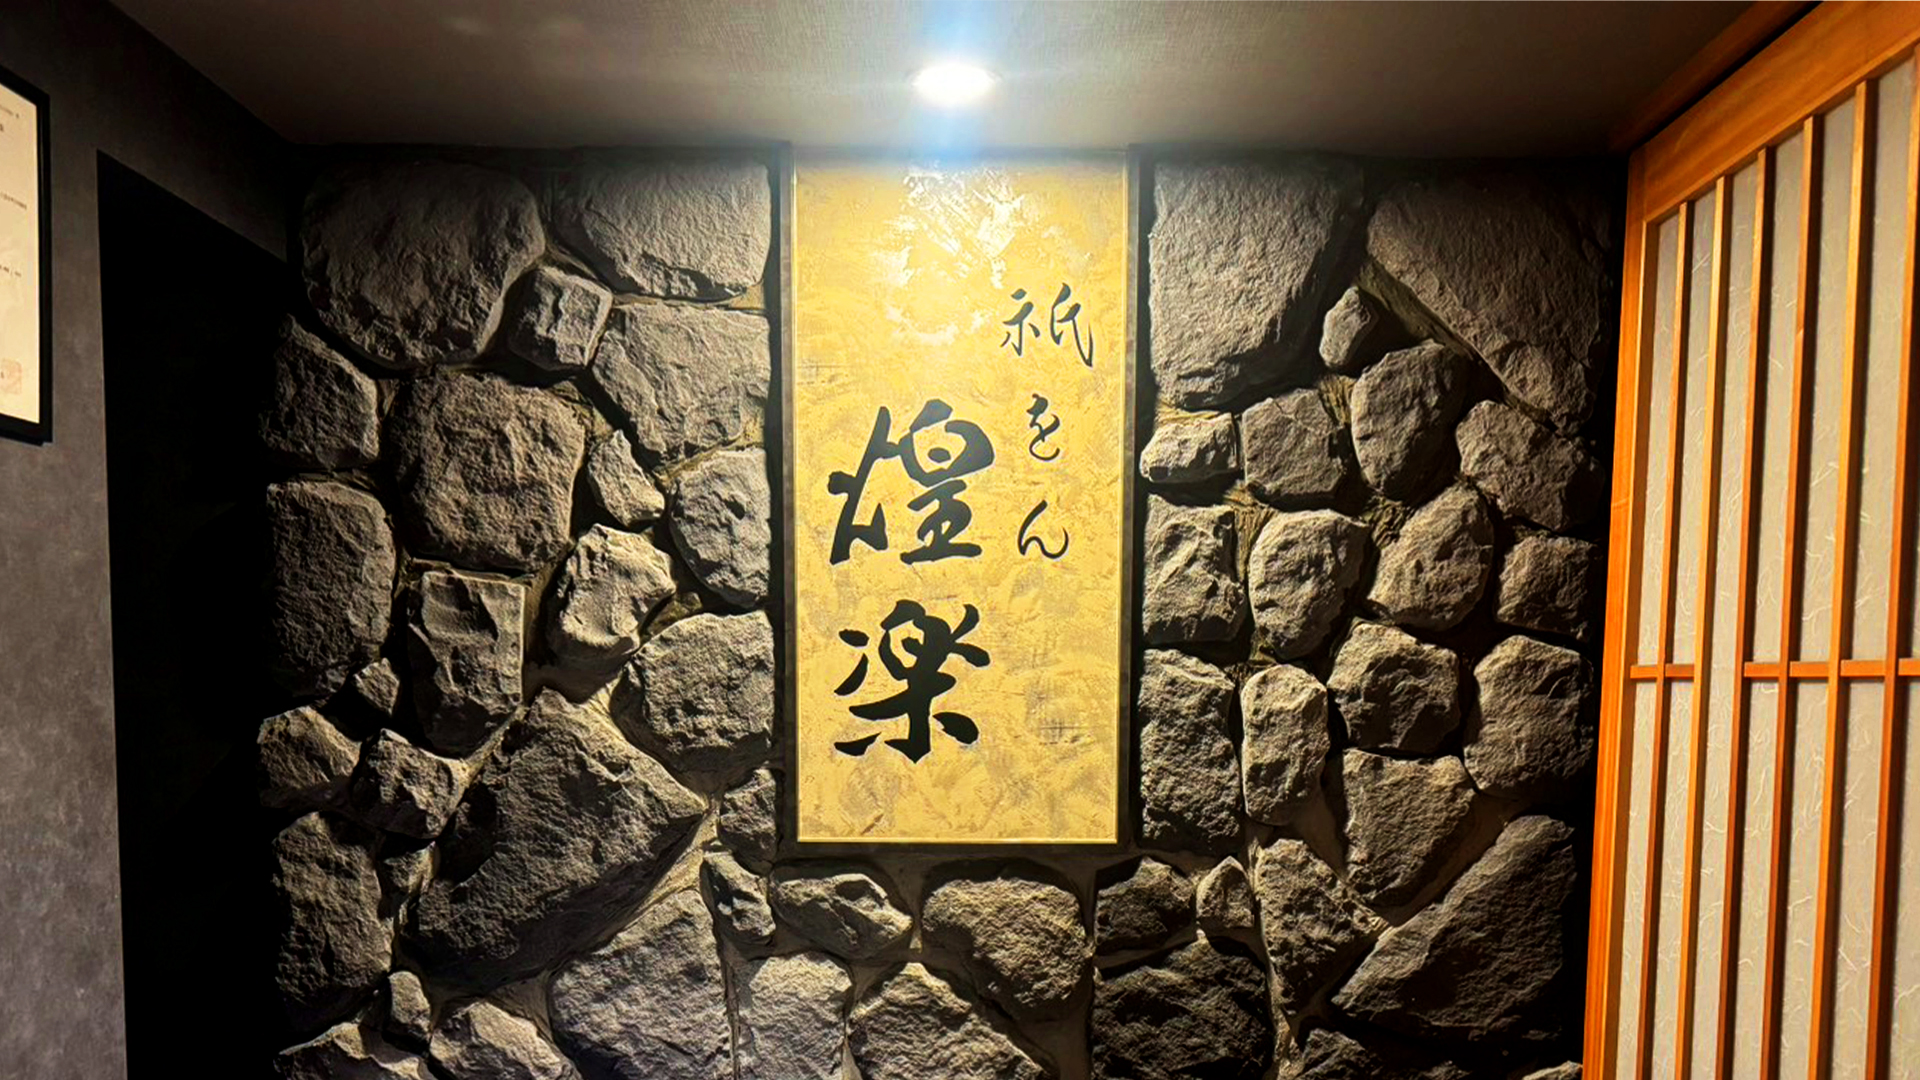 祇をん
煌楽